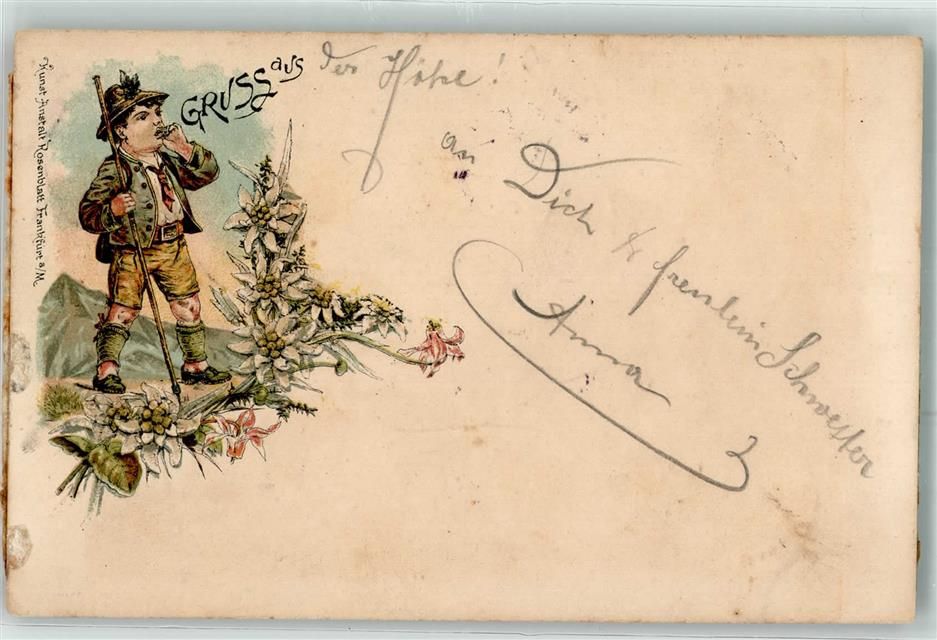 GRUSS aus der Höhe!
an
Dich & freulein Schwester
Anna
Kunst Anstalt Rosenblatt Frankfurt a/M.